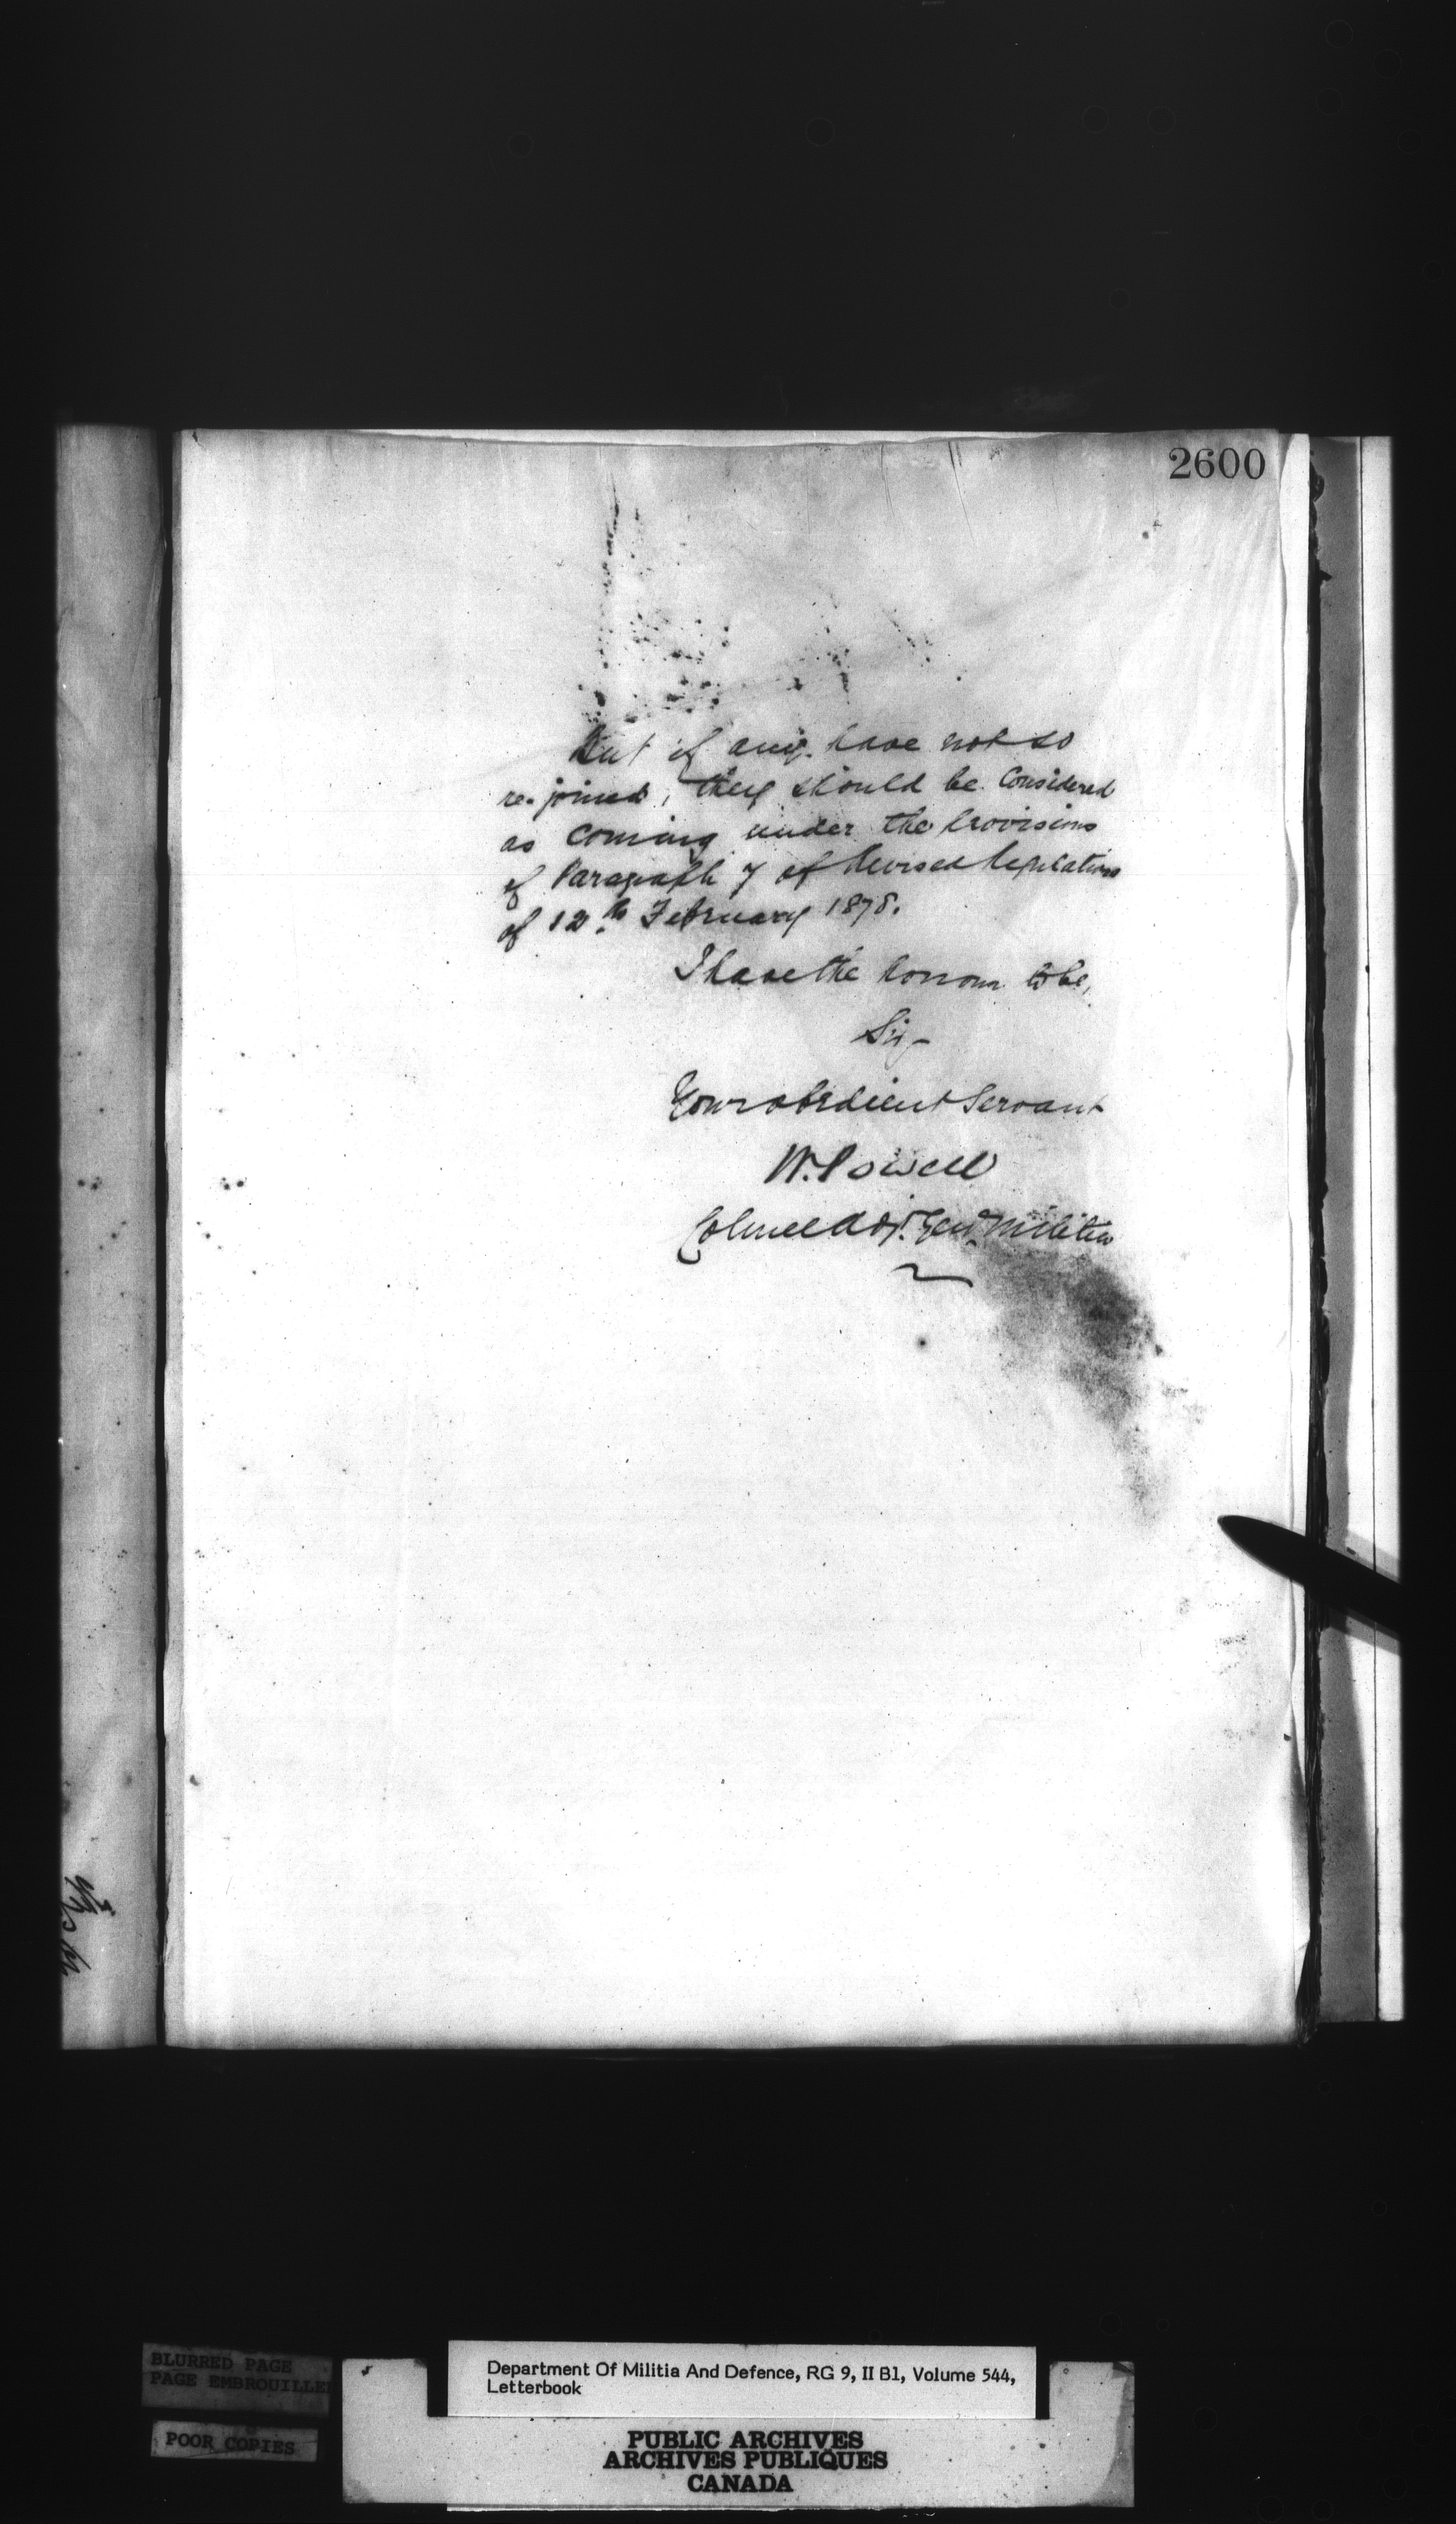 2600
But if any have not so
re-joined, they should be Considered
as coming under the Provisions
of Paragraph 7 of Revised Regulations
of 12th February 1878.
I have the honour to be,
Sir,
Your obedient Servant
W. Powell
Colonel Adjt. Genl. Militia
BLURRED PAGE
PAGE EMBROUILLEE
POOR COPIES
Department Of Militia And Defence, RG 9, II B1, Volume 544,
Letterbook
PUBLIC ARCHIVES
ARCHIVES PUBLIQUES
CANADA